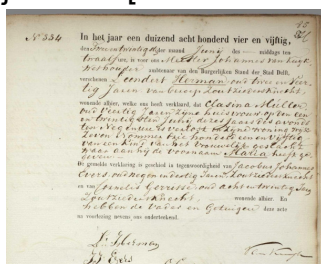 45
No 334
In het jaar een duizend acht honderd vier en vijftig,
den twintigsten der maand Juny des middags ten
twaalf ure, is voor ons Meester Johannes van
Wethouder ambtenaar van den Burgerlijken Stand der Stad Delft,
verschenen Leendert Herman oud twee en veer
tig Jaren van beroep Zoutziedersknecht,
wonende alhier, welke ons heeft verklaard, dat Clasina Mullen
oud veertig Jaren zijne huisvrouw op den een
en twintigsten Juny dezes jaars des avonds
ten Negen ure is verlost ten zijne woning wijk
Zeven Nommer vier honderd een en vijftig
van een kind van het vrouwelijk geslacht
waar aan hij de voornaam Maria heeft ge
geven
De gemelde verklaring is geschied in tegenwoordigheid van Jacobus Johannes
Evers oud negen en dertig Jaren Zoutziedersknecht
en van Cornelis Gerritse oud acht en twintig Jaren
Zoutziedersknecht, wonende alhier. En
hebben de Vader en Getuigen deze acte
na voorlezing nevens ons onderteekend.
L. Herman
JJ Evers